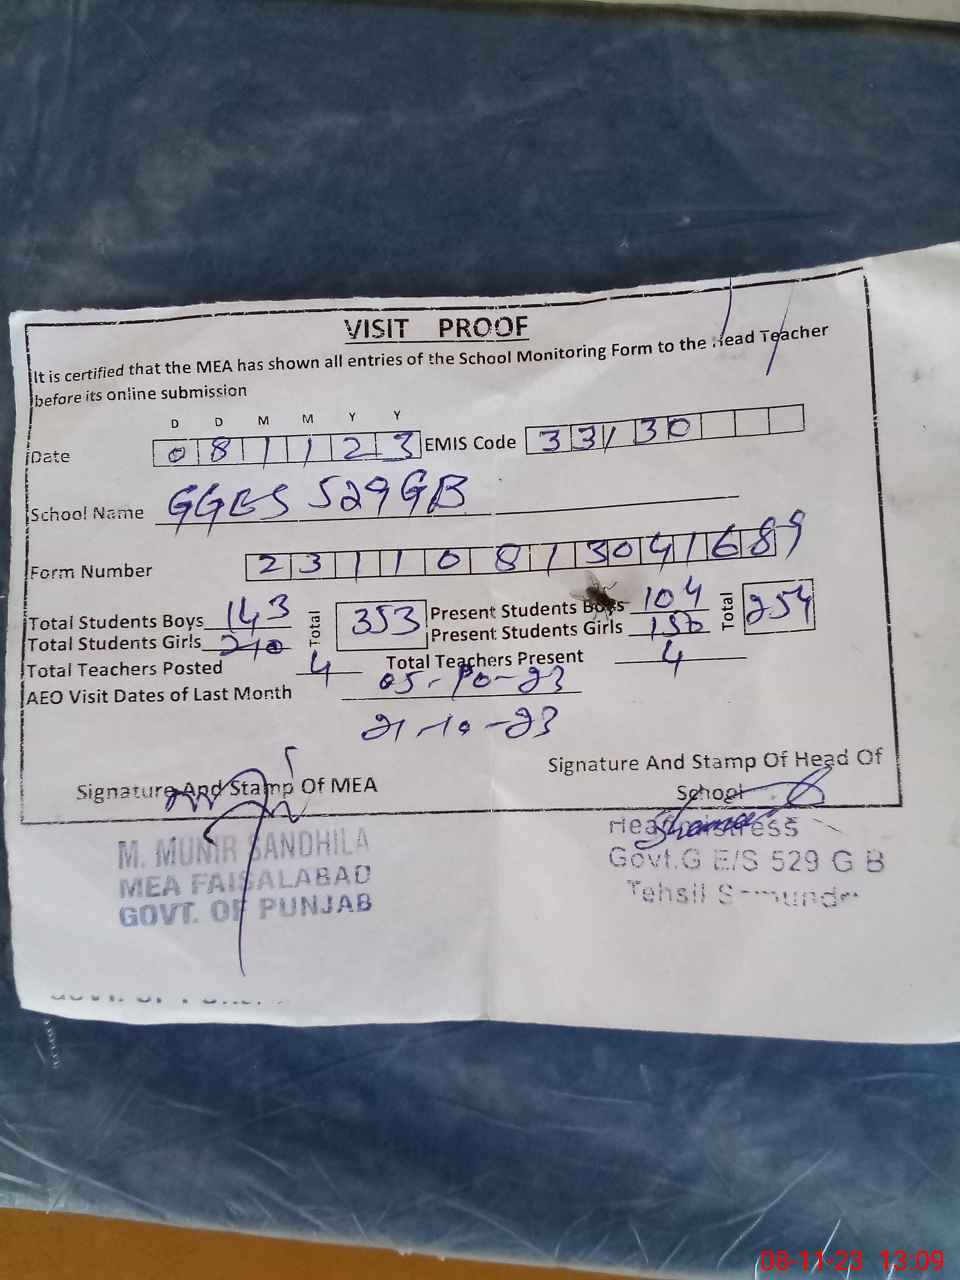 VISIT PROOF
It is certified that the MEA has shown all entries of the School Monitoring Form to the Head Teacher
before its online submission
D D M M Y Y
Date 0 8 1 1 2 3 EMIS Code 3 3 1 3 0
School Name GGES 529 GB
Form Number 2 3 1 1 0 8 1 3 0 4 1 6 8 9
Total Students Boys 143 Total 353 Present Students Boys 104 Total 254
Total Students Girls 210 Present Students Girls 150
Total Teachers Posted 4 Total Teachers Present 4
AEO Visit Dates of Last Month 05-10-23
21-10-23
Signature And Stamp Of MEA Signature And Stamp Of Head Of
School
M. MUNIR SANDHILA Headmistress
MEA FAISALABAD Govt.G E/S 529 G B
GOVT. OF PUNJAB Tehsil
08-11-23 13:09